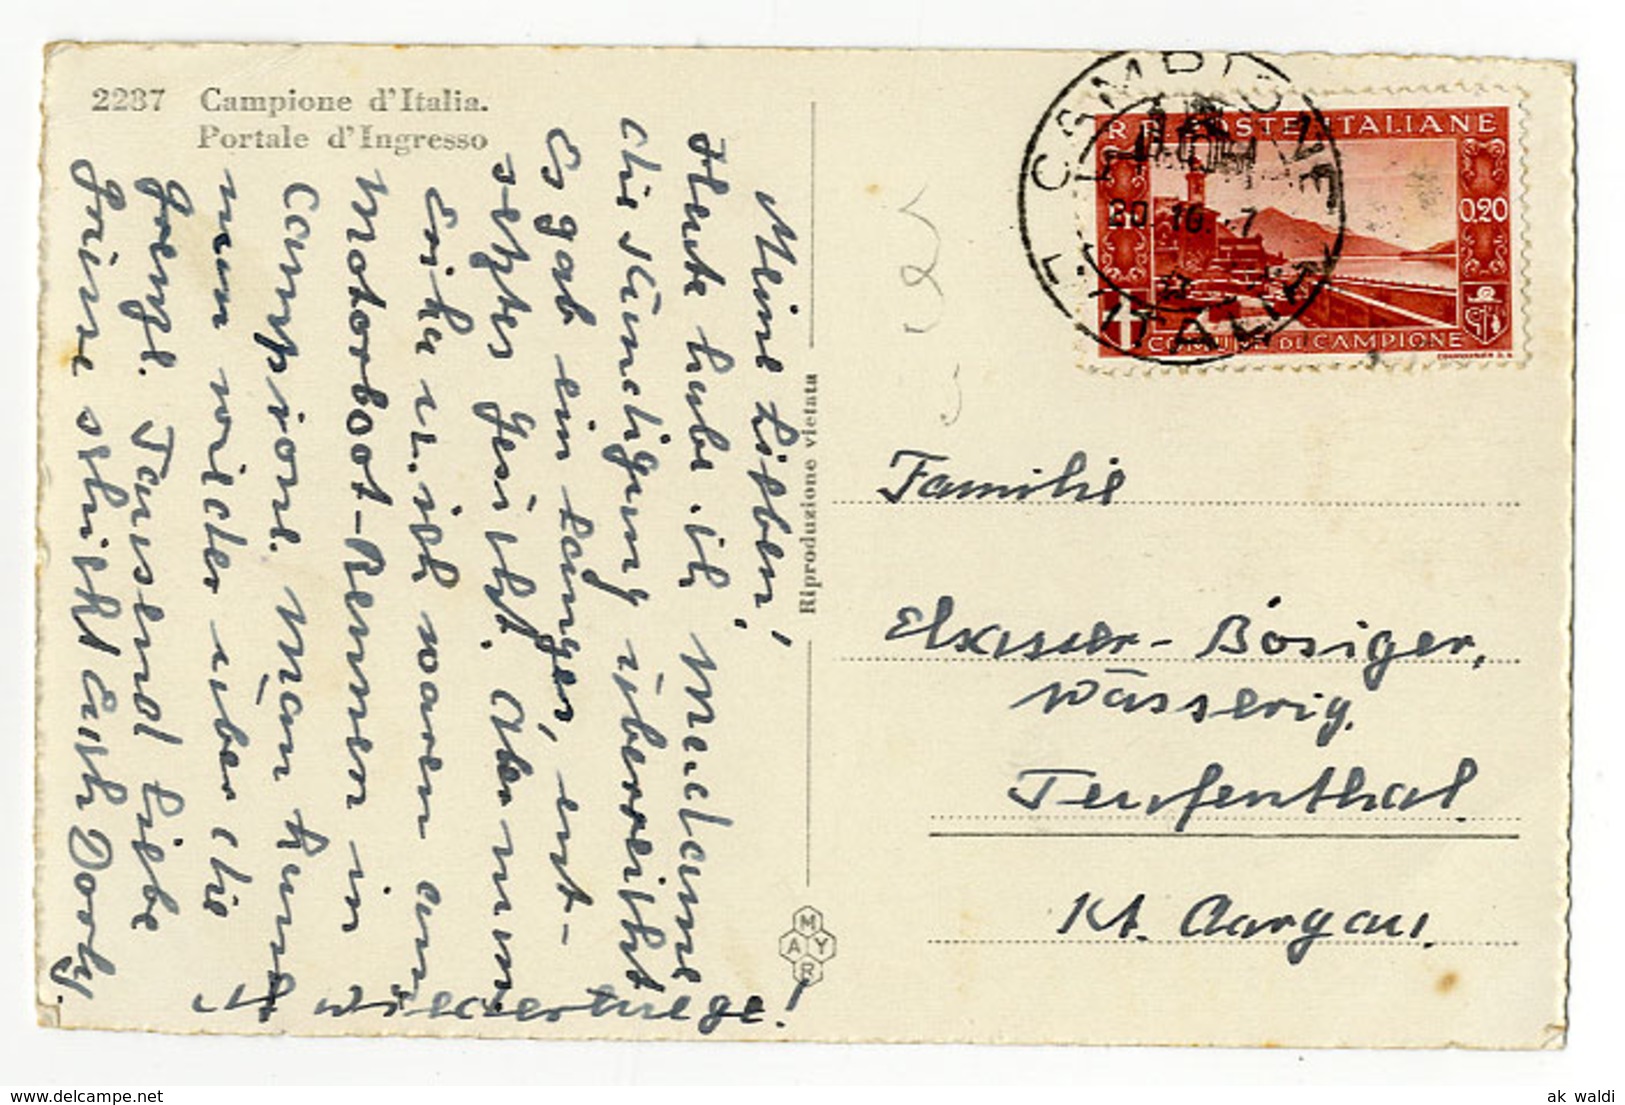 2237 Campione d'Italia.
Portale d'Ingresso
Meine Lieben!
Heute habe ich Madame
die Kündigung überreicht.
Es gab ein langes, ent-
setztes Gesicht. Aber nun
Erika u. ich waren am
Motorboot-Rennen in
Campione. Man kann
nun wieder über die
Grenze. Tausend liebe
Grüsse schickt Euch Dorly.
Riproduzione vietata
MAYR
CAMPIONE
D'ITALIA
20. 10.
RR. POSTE ITALIANE
0.20
COMUNE DI CAMPIONE
Familie
Elsasser-Bösiger,
Wässerig,
Teufenthal
Kt. Aargau.
ak_waldi
www.delcampe.net